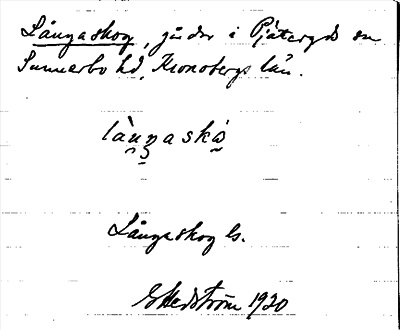 Långaskog, gårdar i Pjätteryds sn
Sunnerbo hd, Kronobergs län.
làŋŋaskó
Långaskog ls.
G Hedström 1920